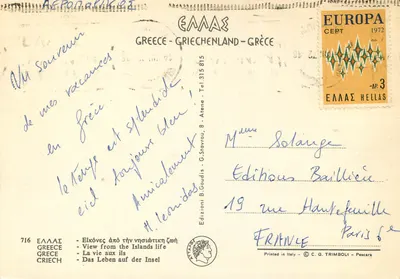 ΑΕΡΟΠΟΡΙΚΩΣ
ΕΛΛΑΣ
GREECE - GRIECHENLAND - GRÈCE
EUROPA
CEPT 1972
ΔΡ 3
ΕΛΛΑΣ HELLAS
Un souvenir
de mes vacances
en Grèce
le temps est splendide
ciel toujours bleu!
Amicalement
Tel. 315 815
Edizioni B. Goudis - G. Stavrou, 8 - Atene
Mme Solange
Editions Baillière
19 rue Hautefeuille
Paris 6e
FRANCE
716 ΕΛΛΑΣ - Εἰκόνες ἀπό τήν νησιώτικη ζωή
GREECE - View from the Islands life
GRECE - La vie aux ils
GRIECH - Das Leben auf der Insel
Printed in Italy © C. G. TRIMBOLI - Pescara